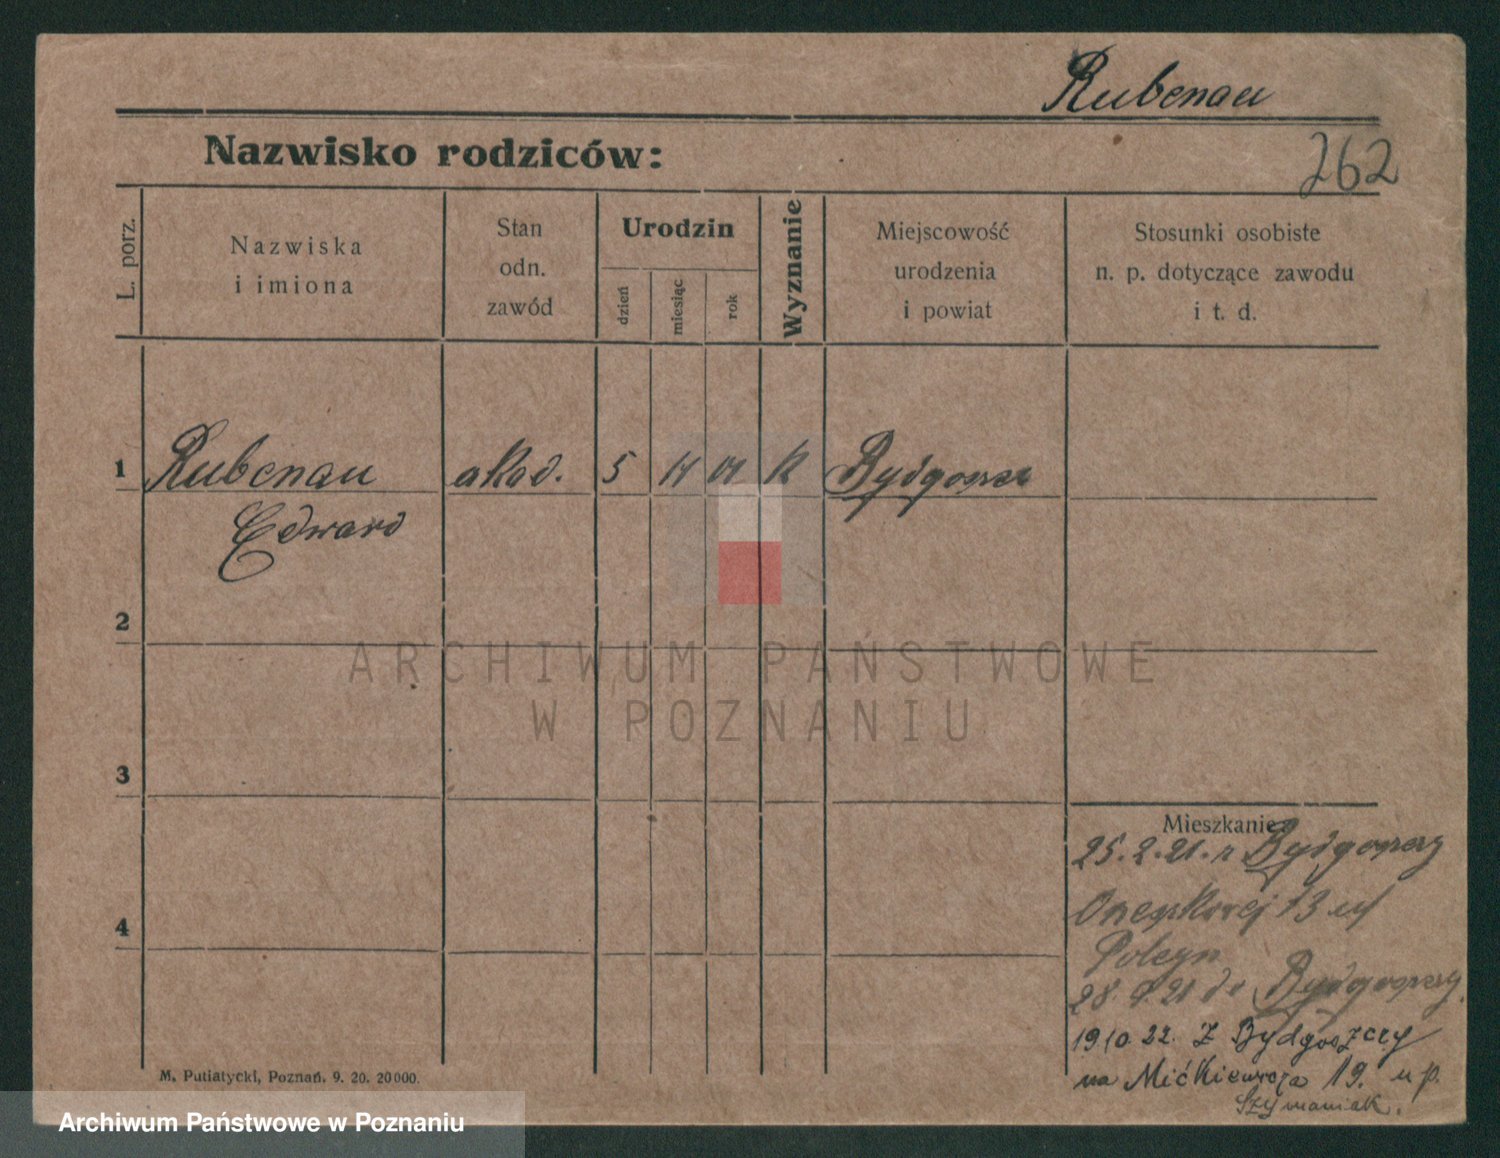 Rubenau
262
Nazwisko rodziców:
L. porz.
Nazwiska
i imiona
Stan
odn.
zawód
Urodzin
dzień
miesiąc
rok
Wyznanie
Miejscowość
urodzenia
i powiat
Stosunki osobiste
n. p. dotyczące zawodu
i t. d.
1 Rubenau akad. 5 K Bydgoszcz
Edward
2
3
4
Mieszkanie
25.2.21. z Bydgoszczy
13
28. 9. 21 do Bydgoszczy.
19.10.22. Z Bydgoszczy
na Mićkiewicza 19. u p.
Szymaniak.
M. Putiatycki, Poznań. 9. 20. 20000.
ARCHIWUM PAŃSTWOWE
W POZNANIU
Archiwum Państwowe w Poznaniu